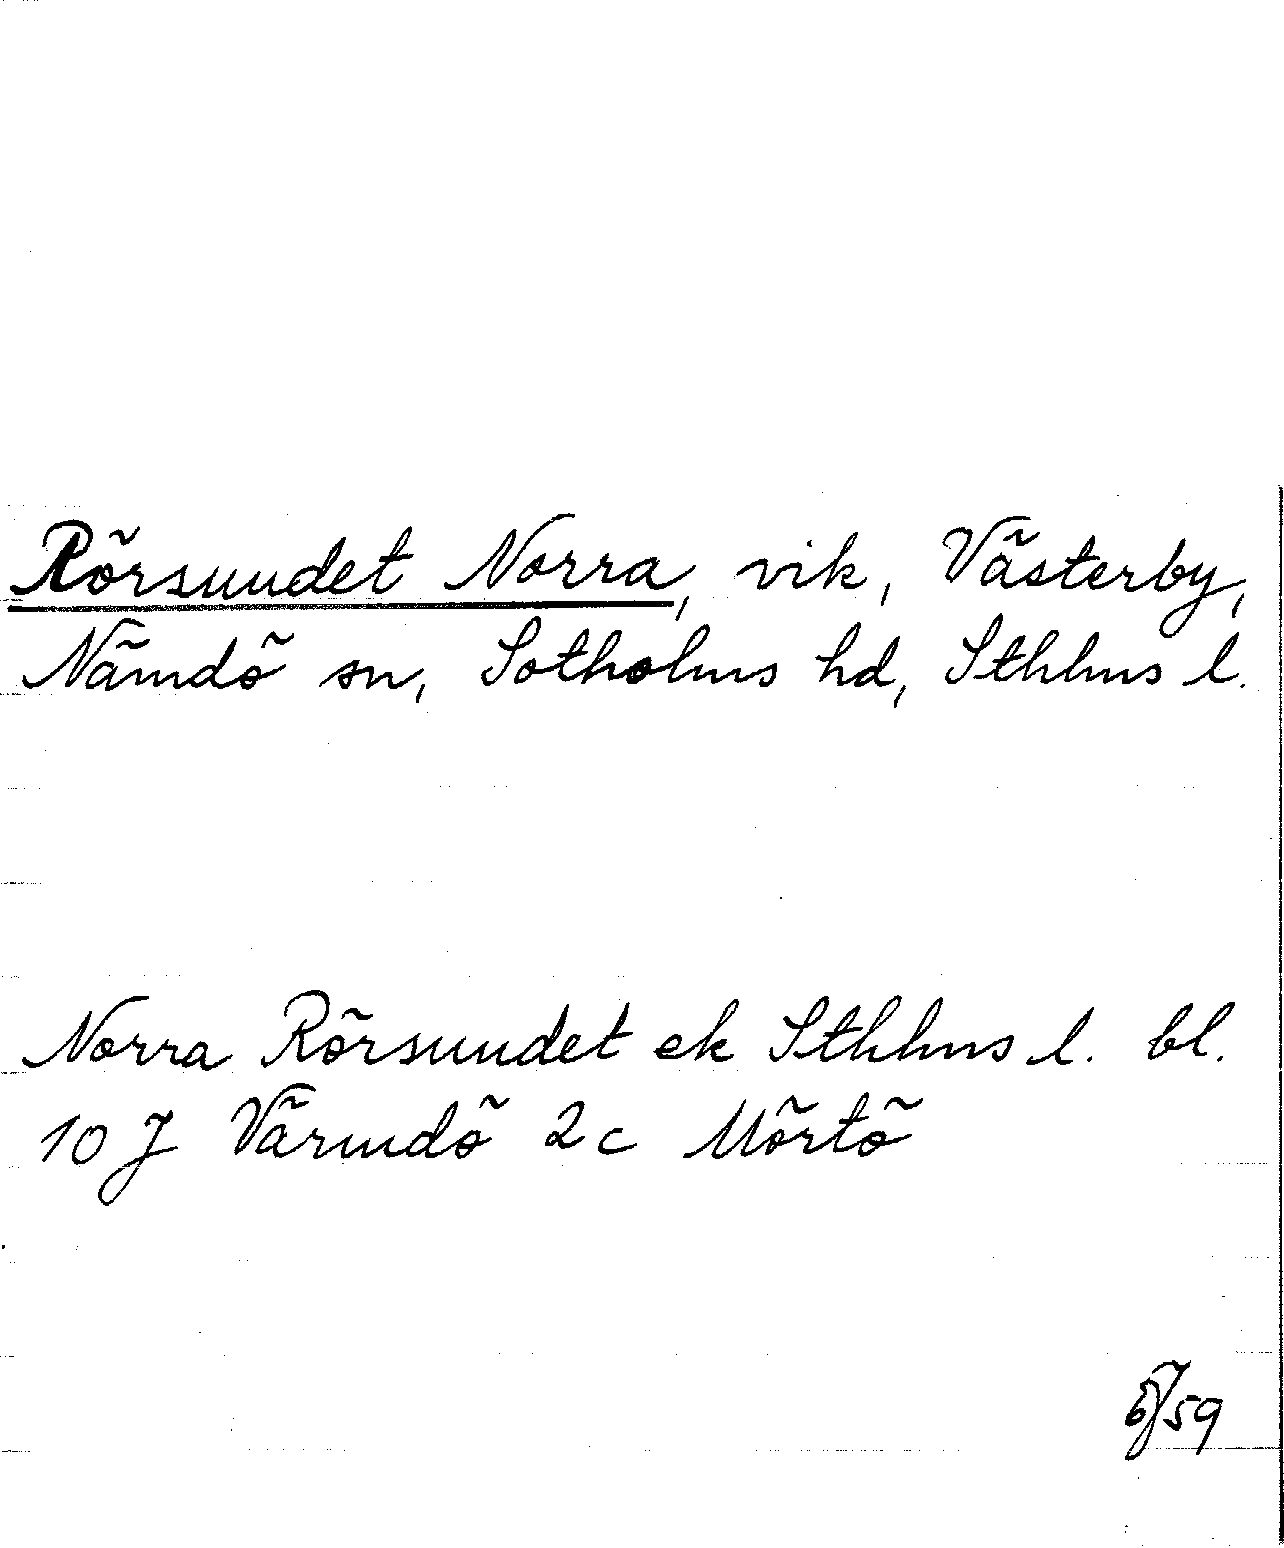 Rörsundet Norra, vik, Västerby,
Nämdö sn, Sotholms hd, Sthlms l.
Norra Rörsundet ek Sthlms l. bl.
10 J Värmdö 2c Mörtö